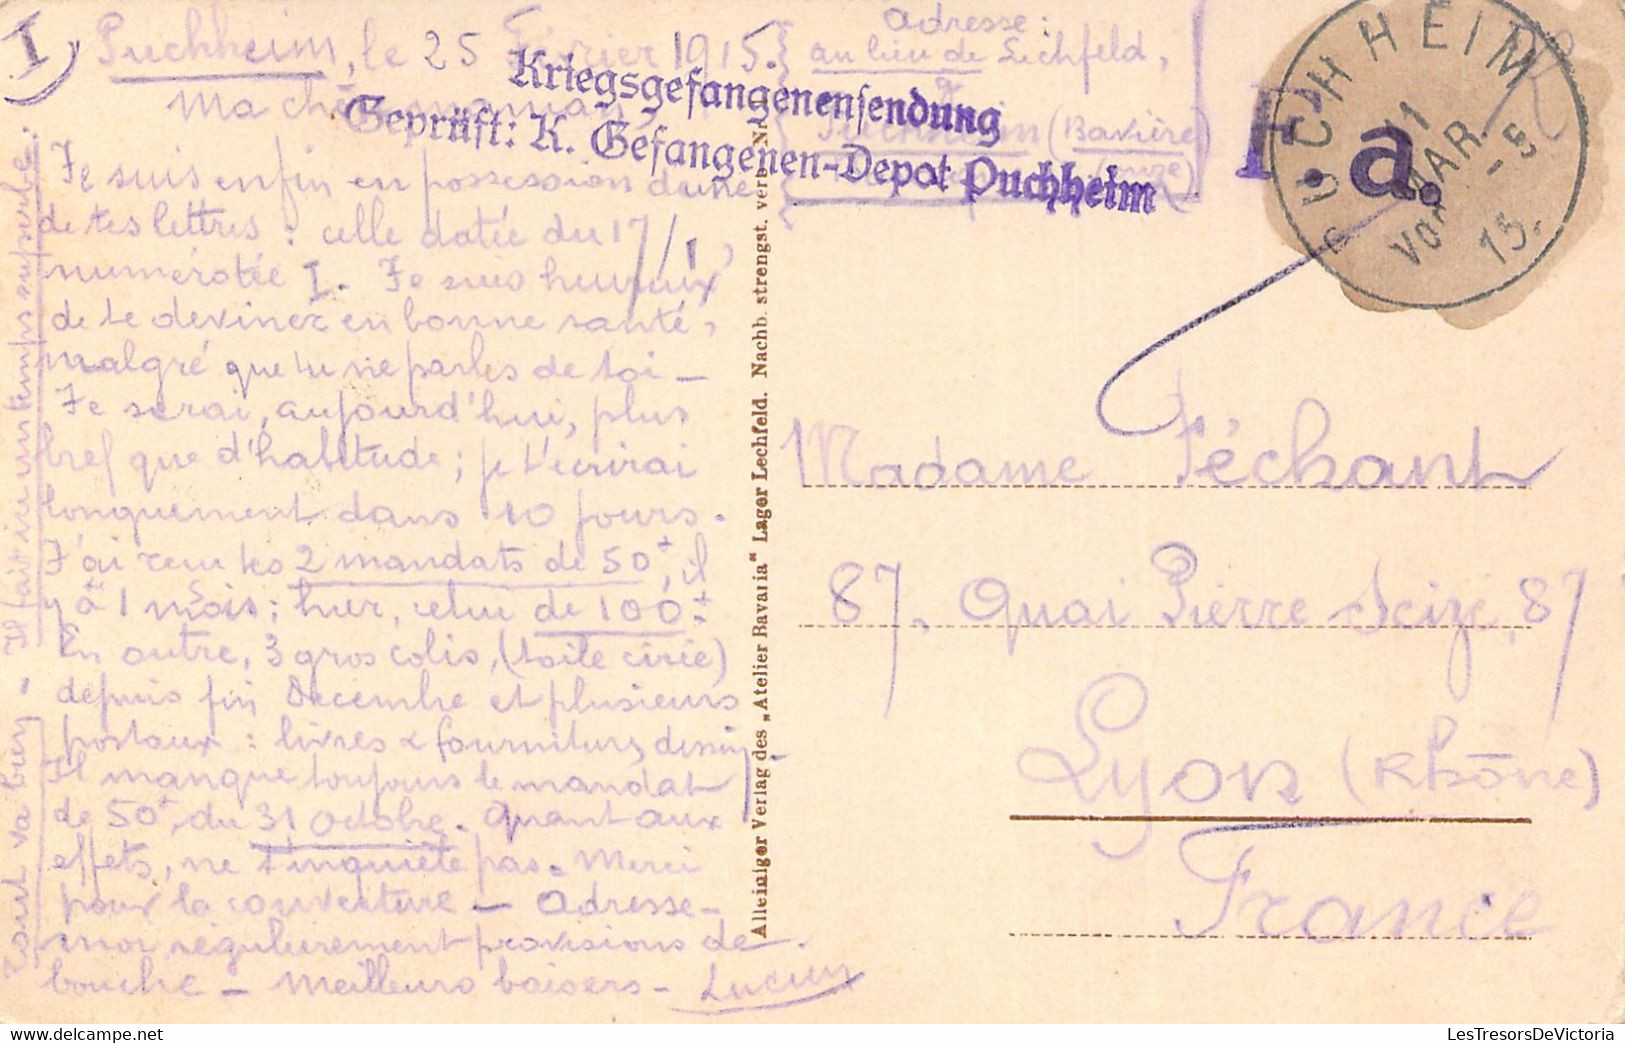 I
Puchheim, le 25 Février 1915.
Ma chère maman,
Je suis enfin en possession d'une
de tes lettres : celle datée du 17/1,
numérotée I. Je suis heureux
de te deviner en bonne santé,
malgré que tu ne parles de toi —
Je serai, aujourd'hui, plus
bref que d'habitude ; je t'écrirai
longuement dans 10 jours.
J'ai reçu tes 2 mandats de 50f, il
y a 1 mois ; hier, celui de 100f.
En outre, 3 gros colis, (toile cirée)
depuis fin Décembre et plusieurs
postaux : livres & fournitures dessin.
Il manque toujours le mandat
de 50f du 31 octobre. Quant aux
effets, ne t'inquiète pas. Merci
pour la couverture — Adresse-
moi régulièrement provisions de
bouche — Meilleurs baisers — Lucien
Tout va bien - Il fait ici un temps superbe.
Adresse :
au lieu de Lechfeld,
Puchheim (Bavière)
Kriegsgefangenensendung
Geprüft: K. Gefangenen-Depot Puchheim
F. a.
PUCHHEIM
11 MAR.
Vor 4-5
15.
Alleiniger Verlag des „Atelier Bavaria“ Lager Lechfeld. Nachb. strengst. verb.
Madame Péchant
87, Quai Pierre Scize, 87
Lyon (Rhône)
France
LesTresorsDeVictoria.com